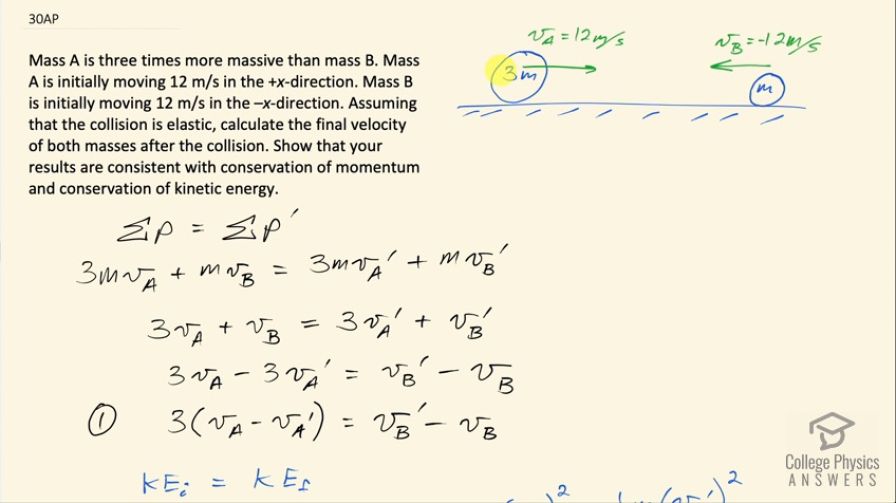 30AP
v_A = 12 m/s
v_B = -12 m/s
3m
m
Mass A is three times more massive than mass B. Mass
A is initially moving 12 m/s in the +x-direction. Mass B
is initially moving 12 m/s in the –x-direction. Assuming
that the collision is elastic, calculate the final velocity
of both masses after the collision. Show that your
results are consistent with conservation of momentum
and conservation of kinetic energy.
Σp = Σp′
3mv_A + mv_B = 3mv_A′ + mv_B′
3v_A + v_B = 3v_A′ + v_B′
3v_A - 3v_A′ = v_B′ - v_B
① 3(v_A - v_A′) = v_B′ - v_B
KE_i = KE_f
College Physics
ANSWERS